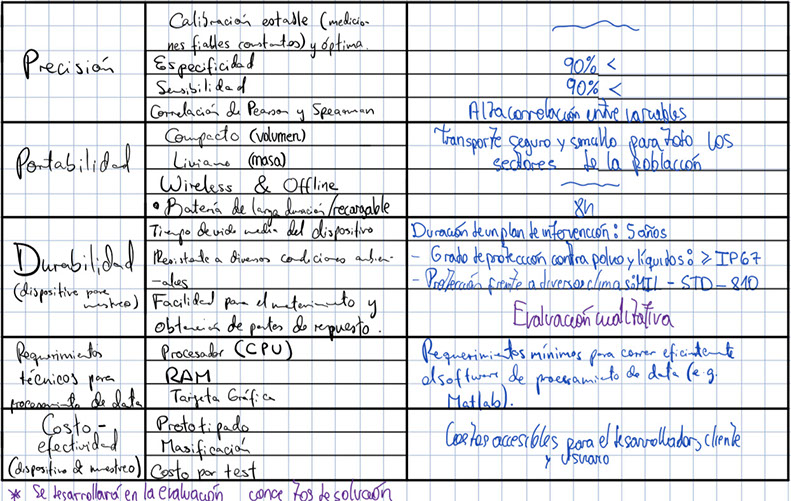 Precisión
Calibración estable (medicio-
nes fiables constantes) y óptima.
Especificidad
90% <
Sensibilidad
90% <
Correlación de Pearson y Spearman
Alta correlación entre variables
Portabilidad
Compacto (volumen)
Liviano (masa)
Transporte seguro y sencillo para todo los
sectores de la población
Wireless & Offline
• Batería de larga duración/recargable
8h
Durabilidad
(dispositivo para
muestreo)
Tiempo de vida media del dispositivo
Duración de un plan de intervención: 5 años
Resistente a diversos condiciones ambien-
-ales
- Grado de protección contra polvo y líquidos: ≥ IP67
- Protección frente a diversos climas: MIL-STD-810
Facilidad para el mantenimiento y
obtención de partes de repuesto.
Evaluación cualitativa
Requerimientos
técnicos para
procesamiento de data
Procesador (CPU)
RAM
Tarjeta Gráfica
Requerimientos mínimos para correr eficientemente
el software de procesamiento de data (e.g.
Matlab).
Costo-
efectividad
(dispositivo de muestreo)
Prototipado
Masificación
Costo por test
Costos accesibles para el desarrollador, cliente
y usuario
* Se desarrollará en la evaluación conceptos de solución